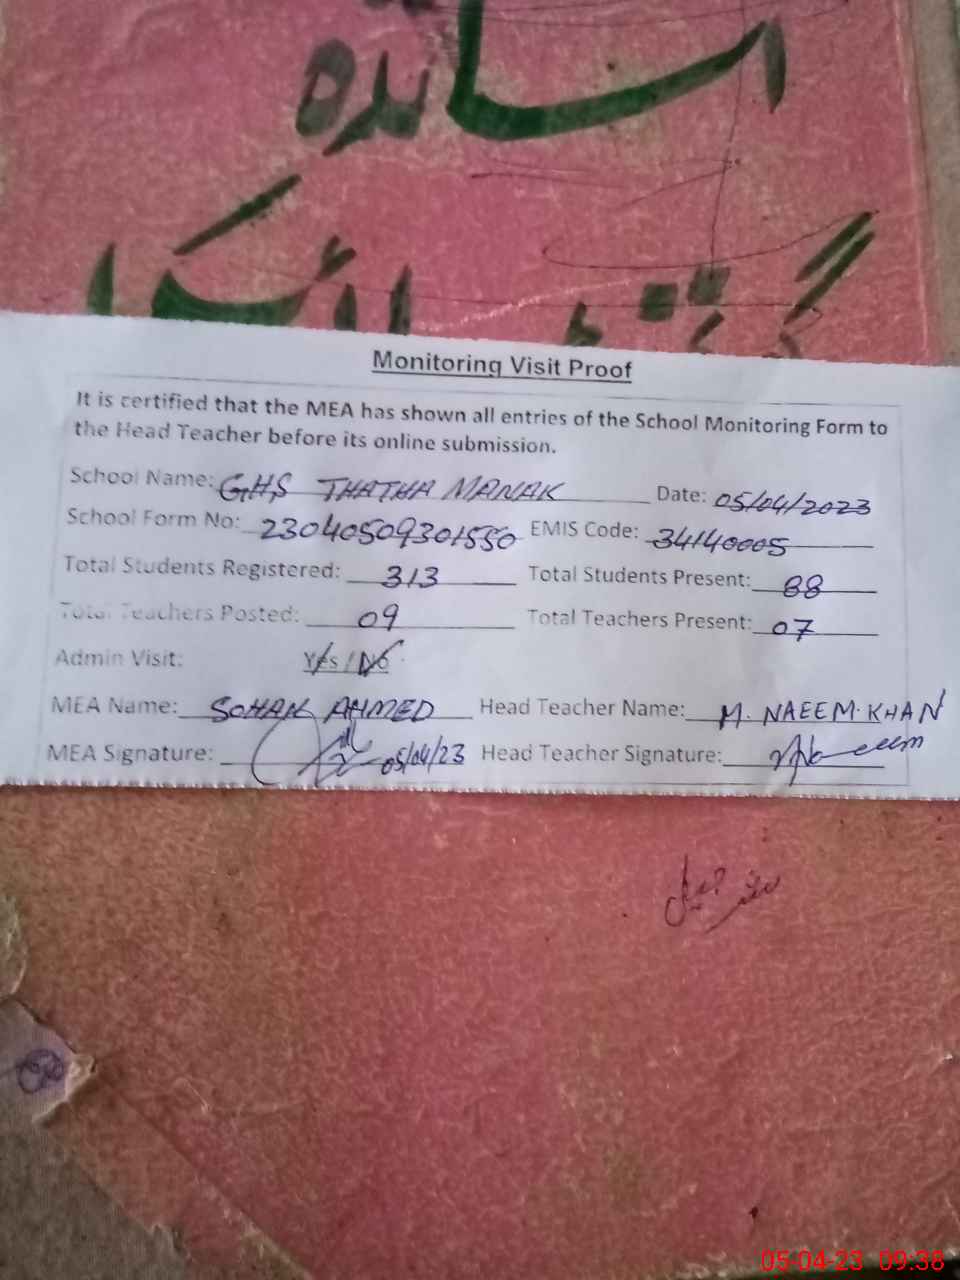 اساتذہ
Monitoring Visit Proof
It is certified that the MEA has shown all entries of the School Monitoring Form to
the Head Teacher before its online submission.
School Name: GHS THATHA MANAK Date: 05/04/2023
School Form No: 23040509301550 EMIS Code: 34140005
Total Students Registered: 313 Total Students Present: 88
Total Teachers Posted: 09 Total Teachers Present: 07
Admin Visit: Yes / No
MEA Name: SOHAN AHMED Head Teacher Name: M. NAEEM. KHAN
MEA Signature: 05/04/23 Head Teacher Signature: Naeem
05-04-23 09:38